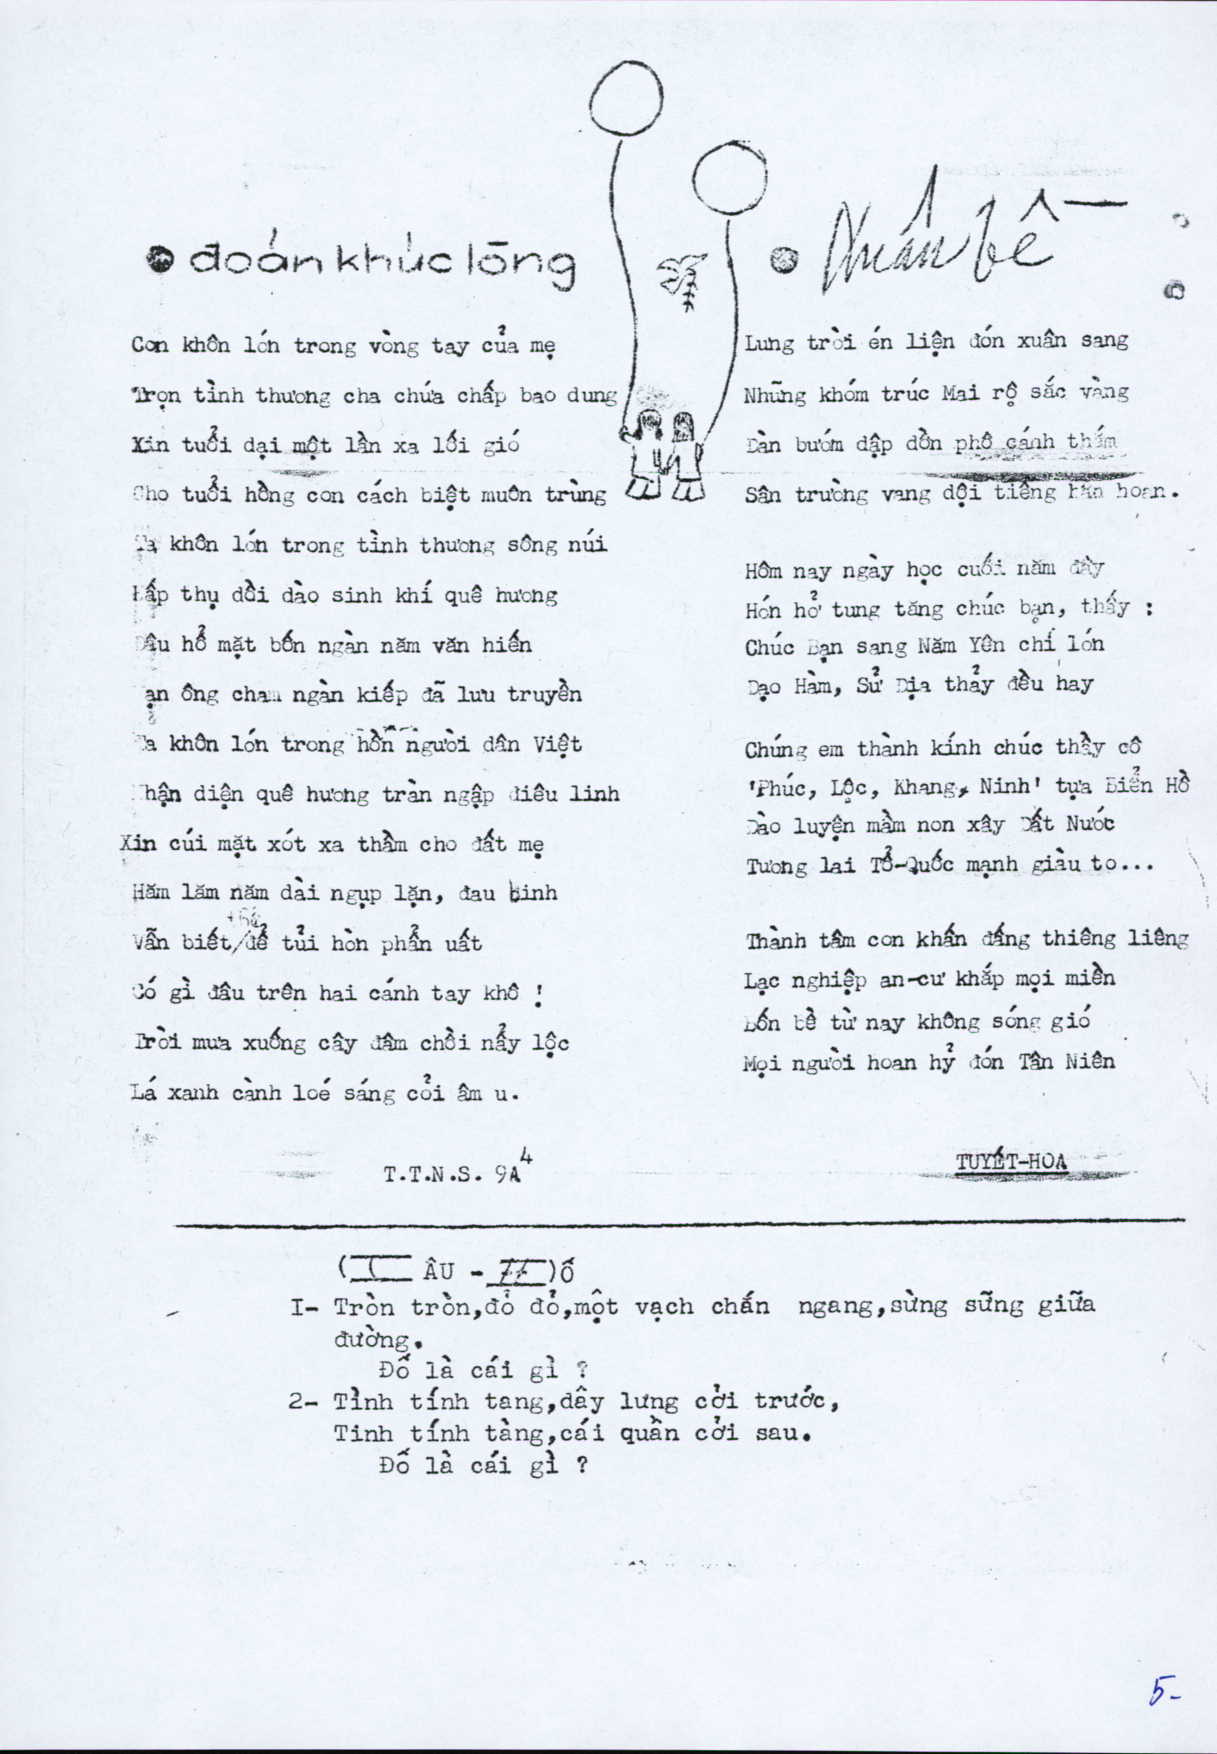 đoản khúc lòng
Con khôn lớn trong vòng tay của mẹ
Trọn tình thương cha chứa chấp bao dung
Xin tuổi dại một lần xa lối gió
Cho tuổi hồng con cách biệt muôn trùng
Ta khôn lớn trong tình thương sông núi
Hấp thụ dồi dào sinh khí quê hương
Đâu hổ mặt bốn ngàn năm văn hiến
ạn ông cham ngàn kiếp đã lưu truyền
Ta khôn lớn trong hồn người dân Việt
Nhận diện quê hương tràn ngập điêu linh
Xin cúi mặt xót xa thầm cho đất mẹ
Hăm lăm năm dài ngụp lặn, đau binh
Vẫn biết/để tủi hờn phẫn uất
Có gì đâu trên hai cánh tay khô !
Trời mưa xuống cây đâm chồi nẩy lộc
Lá xanh cành loé sáng cỏi âm u.
T.T.N.S. 9A4
Lưng trời én liện đón xuân sang
Những khóm trúc Mai rộ sắc vàng
Đàn bướm dập dồn phô cánh thắm
Sân trường vang dội tiếng hân hoan.
Hôm nay ngày học cuối năm đầy
Hớn hở tung tăng chúc bạn, thầy :
Chúc Bạn sang Năm Yên chí lớn
Đạo Hàm, Sử Địa thảy đều hay
Chúng em thành kính chúc thầy cô
'Phúc, Lộc, Khang, Ninh' tựa Biển Hồ
Đào luyện mầm non xây Đất Nước
Tương lai Tổ-Quốc mạnh giàu to...
Thành tâm con khấn đấng thiêng liêng
Lạc nghiệp an-cư khắp mọi miền
Bốn bề từ nay không sóng gió
Mọi người hoan hỷ đón Tân Niên
TUYẾT-HOA
ÂU - )Ố
I- Tròn tròn,đỏ đỏ,một vạch chắn ngang,sừng sững giữa
đường.
Đố là cái gì ?
2- Tình tính tang,dây lưng cởi trước,
Tinh tính tàng,cái quần cởi sau.
Đố là cái gì ?
5-